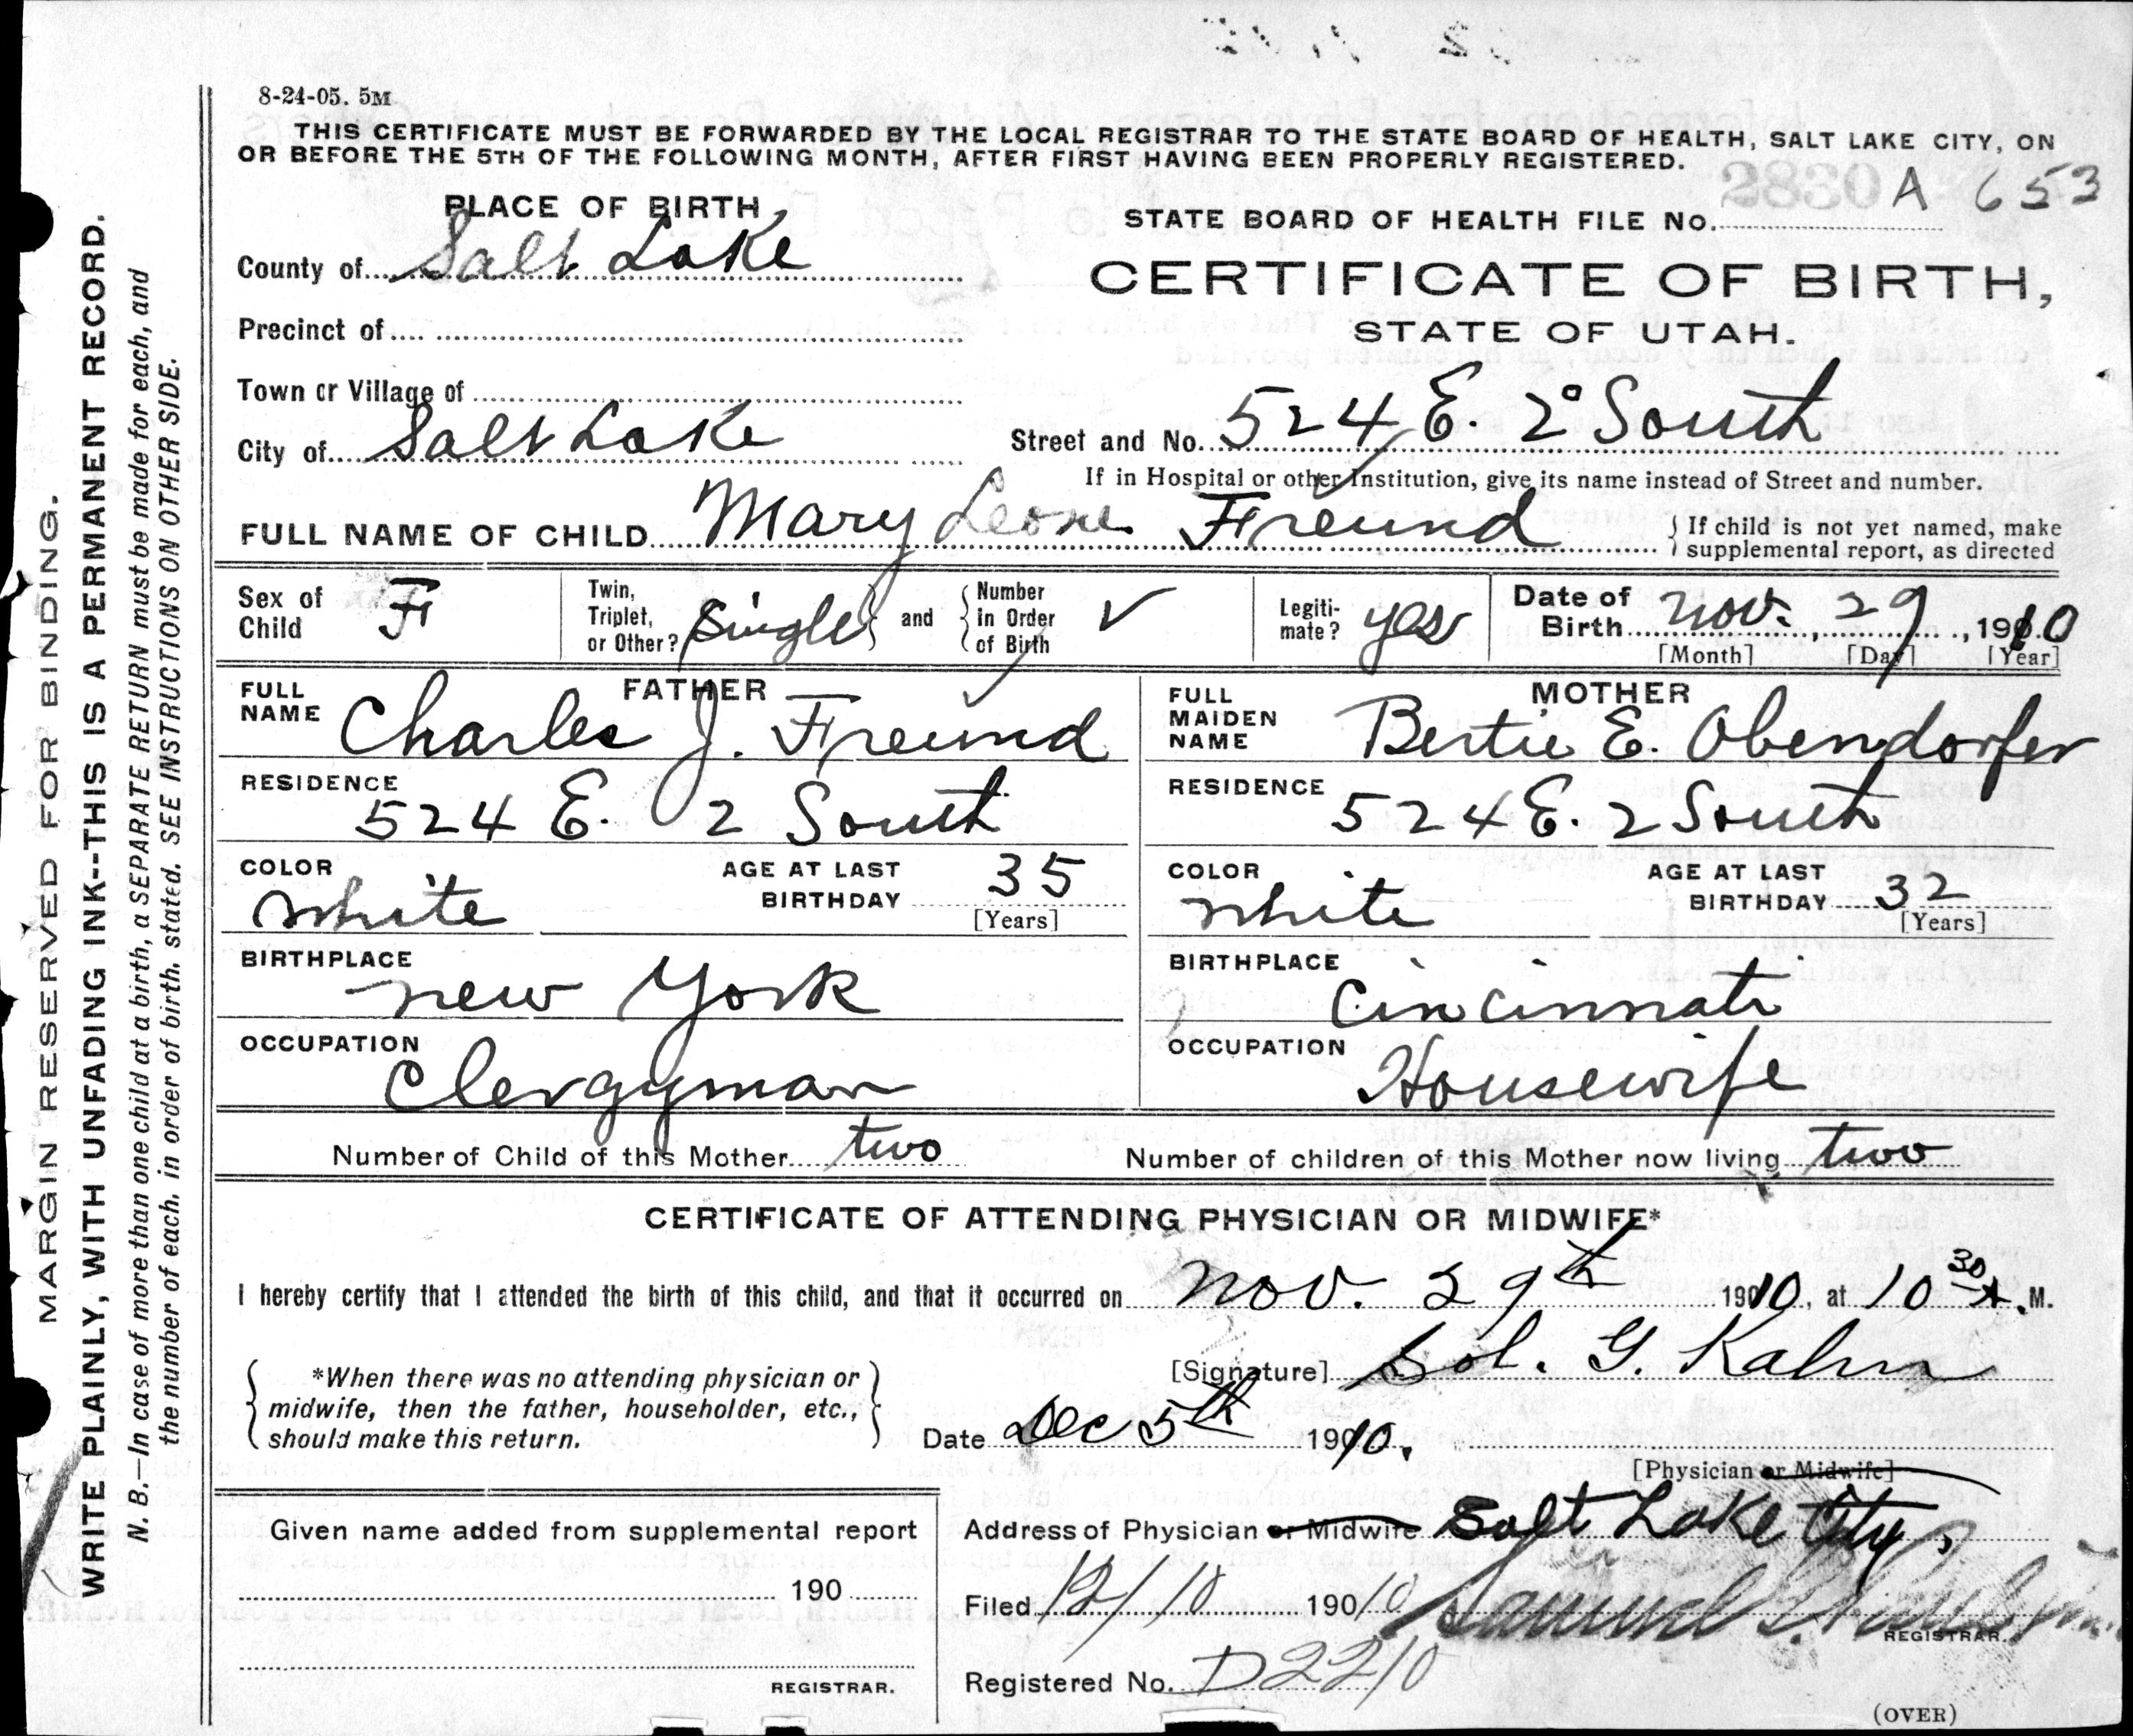 8-24-05. 5M
THIS CERTIFICATE MUST BE FORWARDED BY THE LOCAL REGISTRAR TO THE STATE BOARD OF HEALTH, SALT LAKE CITY, ON
OR BEFORE THE 5TH OF THE FOLLOWING MONTH, AFTER FIRST HAVING BEEN PROPERLY REGISTERED.
2830 A 653
PLACE OF BIRTH
STATE BOARD OF HEALTH FILE No.
County of Salt Lake
CERTIFICATE OF BIRTH,
STATE OF UTAH.
Precinct of
Town or Village of
City of Salt Lake
Street and No. 524 E. 2° South
If in Hospital or other Institution, give its name instead of Street and number.
FULL NAME OF CHILD Mary Leone Freund
{ If child is not yet named, make
supplemental report, as directed
Sex of Child F
Twin, Triplet, or Other? Single } and { Number in Order of Birth ✓
Legiti-mate? yes
Date of Birth Nov. 29, 1910
[Month] [Day] [Year]
FATHER
FULL NAME Charles J. Freund
RESIDENCE
524 E. 2 South
COLOR
White
AGE AT LAST BIRTHDAY 35
[Years]
BIRTHPLACE
New York
OCCUPATION
Clergyman
MOTHER
FULL MAIDEN NAME Bertie E. Obendorfer
RESIDENCE
524 E. 2 South
COLOR
White
AGE AT LAST BIRTHDAY 32
[Years]
BIRTHPLACE
Cincinnati
OCCUPATION
Housewife
Number of Child of this Mother two
Number of children of this Mother now living two
CERTIFICATE OF ATTENDING PHYSICIAN OR MIDWIFE*
I hereby certify that I attended the birth of this child, and that it occurred on Nov. 29th 1910, at 10 30 A. M.
{ *When there was no attending physician or
midwife, then the father, householder, etc.,
should make this return. }
[Signature] Sol. G. Kahn
Date Dec 5th 1910.
[Physician or Midwife]
Address of Physician or Midwife Salt Lake City,
Given name added from supplemental report
190
REGISTRAR.
Filed 12/10 1910 Samuel G.
REGISTRAR.
Registered No. D2210
(OVER)
MARGIN RESERVED FOR BINDING.
WRITE PLAINLY, WITH UNFADING INK--THIS IS A PERMANENT RECORD.
N. B.—In case of more than one child at a birth, a SEPARATE RETURN must be made for each, and
the number of each, in order of birth, stated. SEE INSTRUCTIONS ON OTHER SIDE.